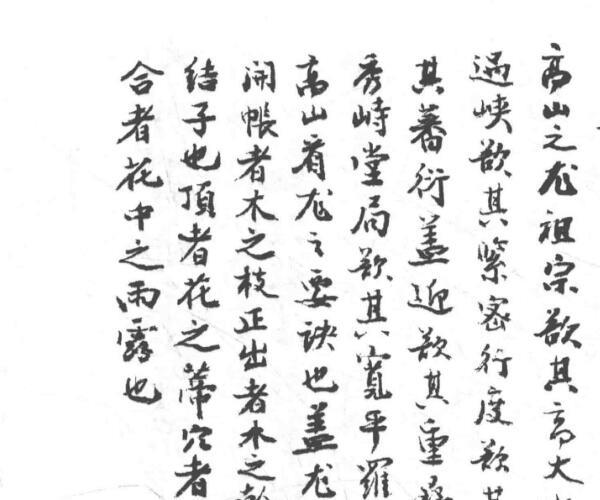 高山之龙祖宗欲其高大
過峡欲其緊密行度欲其
其蕃衍盖迎欲其重
秀峙堂局欲其寬平羅
高山看龙之要訣也盖龙
開帳者木之枝正出者木之
结子也頂者花之蒂穴者
合者花中之雨露也